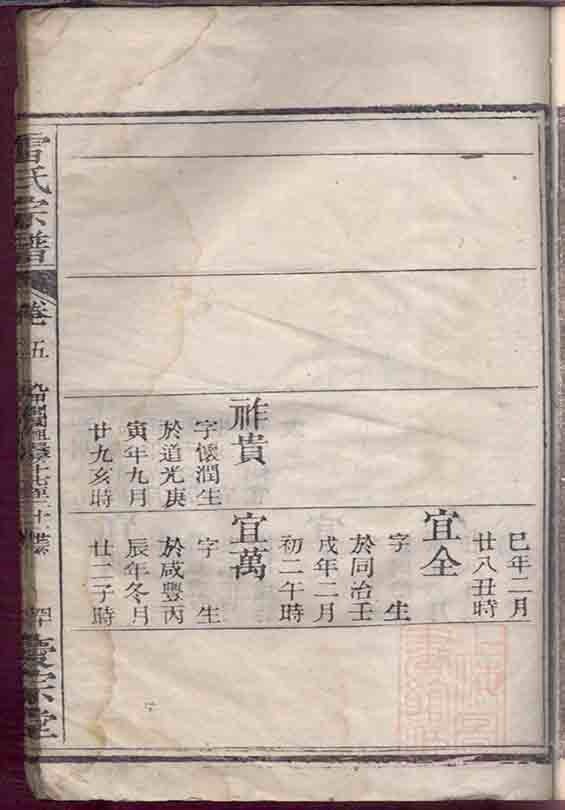 巳年二月
廿八丑時
宜全
字 生
於同治壬
戌年二月
初二午時
祚貴
字懷潤生
於道光庚
寅年九月
廿九亥時
宜萬
字 生
於咸豐丙
辰年冬月
廿二子時
雷氏宗譜
卷五
慶宗堂